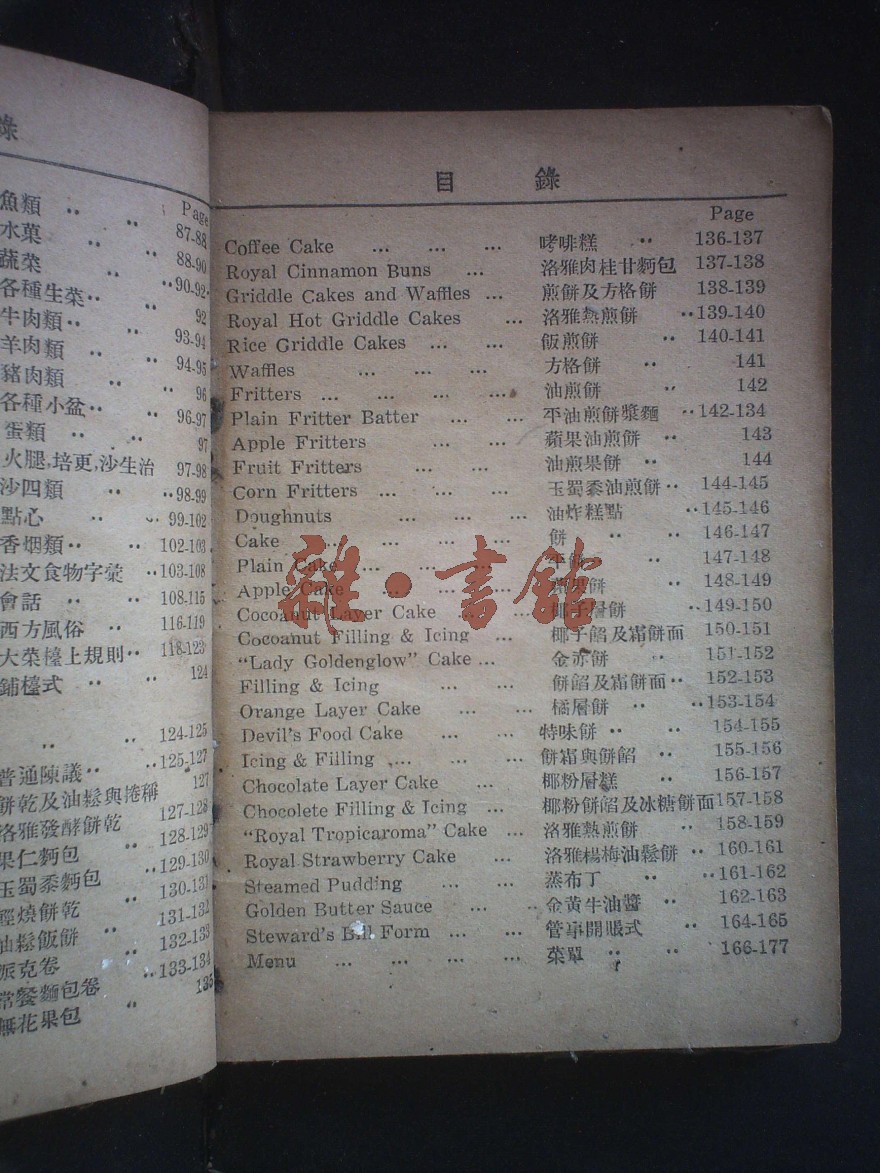 錄
Page
魚類 .. .. 87-88
水菓 .. 88-90
蔬菜 .. 90-92
各種生菜.. .. 92
牛肉類.. .. 93-94
羊肉類 .. .. 94-95
豬肉類 .. 96
各種小盆.. .. 96-97
蛋類 .. .. 97
火腿,培更,沙生治 97-98
沙四類 .. ..98-99
點心 .. .. 99-102
香烟類.. .. 102-103
法文食物字彙 ..103-108
會話 .. .. 108-115
西方風俗 .. .. 116-119
大菜檯上規則.. 118-123
鋪檯式 .. .. 124
.. .. 124-125
普通陳議.. ..125-127
餅乾及油鬆與捲稱 127
洛雅發酵餅乾 127-128
果仁麪包 .. 128-129
玉蜀黍麪包 ..129-130
輕燒餅乾 .. 130-131
油鬆飯餅 .. 131-132
派克卷 .. 132-133
常餐麵包卷 ..133-134
無花果包 .. 135
目 錄
Page
Coffee Cake ... ... ... 哮啡糕 .. 136-137
Royal Cinnamon Buns ... 洛雅肉桂甘麪包 137-138
Griddle Cakes and Waffles ... 煎餅及方格餅 138-139
Royal Hot Griddle Cakes ... 洛雅熱煎餅 ..139-140
Rice Griddle Cakes ... ... 飯煎餅 .. 140-141
Waffles ... ... ... 方格餅 .. 141
Fritters ... ... ... ... 油煎餅 .. 142
Plain Fritter Batter ... ... 平油煎餅漿麵 ..142-134
Apple Fritters ... ... 蘋果油煎餅 .. 143
Fruit Fritters ... ... 油煎果餅 .. 144
Corn Fritters ... ... ... 玉蜀黍油煎餅.. 144-145
Doughnuts ... ... ... 油炸糕點 ..145-146
Cake ... ... ... ... 餅 .. .. 146-147
Plain Cake ... ... ... 平餅 .. 147-148
Apple Cake ... ... ... 蘋果餅 .. 148-149
Cocoanut Layer Cake ... ... 椰子層餅 ..149-150
Cocoanut Filling & Icing ... 椰子餡及霜餅面 150-151
“Lady Goldenglow” Cake ... 金亦餅 .. 151-152
Filling & Icing ... ... 餅餡及霜餅面.. 152-153
Orange Layer Cake ... ... 橘層餅 .. ..153-154
Devil's Food Cake ... ... 特味餅 .. .. 154-155
Icing & Filling ... ... ... 餅霜與餅餡 .. 155-156
Chocolate Layer Cake ... 椰粉層糕 .. 156-157
Chocolete Filling & Icing ... 椰粉餅餡及冰糖餅面157-158
“Royal Tropicaroma” Cake ... 洛雅熱煎餅 .. 158-159
Royal Strawberry Cake ... 洛雅楊梅油鬆餅 .. 160-161
Steamed Pudding ... ... 蒸布丁 .. ..161-162
Golden Butter Sauce ... ... 金黃牛油醬 .. 162-163
Steward's Bill Form ... ... 管事開賬式 .. 164-165
Menu ... ... ... ... 菜單 .. .. 166-177
雜·書館